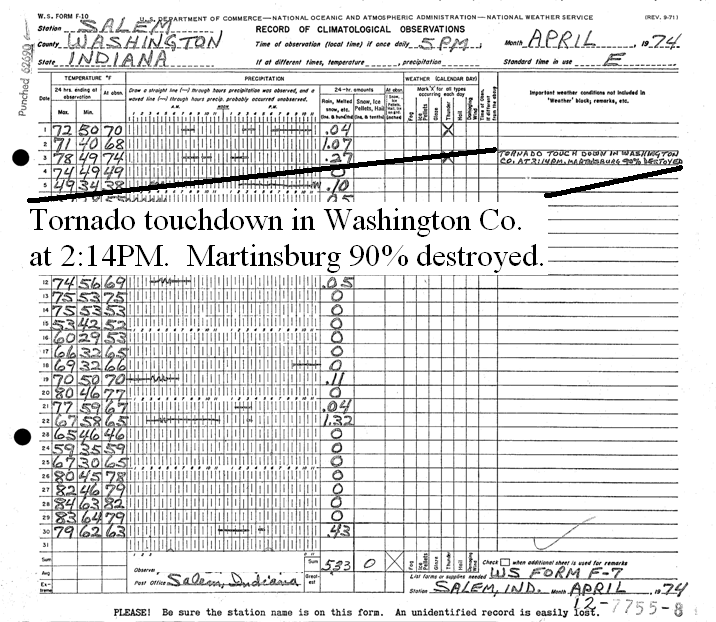 W. S. FORM F-10 U. S. DEPARTMENT OF COMMERCE—NATIONAL OCEANIC AND ATMOSPHERIC ADMINISTRATION—NATIONAL WEATHER SERVICE (REV. 9-71)
Station SALEM RECORD OF CLIMATOLOGICAL OBSERVATIONS
County WASHINGTON Time of observation (local time) if once daily 5 PM, Month APRIL, 1974
State INDIANA If at different times, temperature , precipitation Standard time in use E
Punched
TEMPERATURE °F PRECIPITATION WEATHER (CALENDAR DAY)
Date 24 hrs. ending at observation At obsn. Draw a straight line (—) through hours precipitation was observed, and a waved line through hours precip. probably occurred unobserved. 24-hr. amounts At obsn. Mark 'X' for all types occurring each day Important weather conditions not included in 'Weather' block; remarks, etc.
Max. Min. A.M. NOON P.M. Rain, Melted snow, etc. (Ins. & hundredths) Snow, Ice Pellets, Hail (Ins. & tenths) Fog Ice Pellets Glaze Thunder Hail Damaging Wind
1 72 50 70 .04 X
2 71 40 68 1.07
3 78 49 74 .27 X TORNADO TOUCH DOWN IN WASHINGTON
CO. AT 2:14 PM. MARTINSBURG 90% DESTROYED
4 74 49 49 0
5 49 34 38 .10
Tornado touchdown in Washington Co.
at 2:14PM. Martinsburg 90% destroyed.
12 74 56 69 .05
13 75 53 75 0
14 75 53 53 0
15 53 42 52 0
16 60 29 53 0
17 66 32 65 0
18 69 32 66 0
19 70 50 70 .11
20 80 46 77 0
21 77 59 67 .04
22 67 58 65 1.32
23 65 46 46 0
24 59 35 59 0
25 67 30 65 0
26 80 45 78 0
27 82 46 79 0
28 84 63 82 0
29 83 64 79 0
30 79 62 63 .43
31
Sum Sum 5.33 0 X Fog Ice Pellets Glaze Thunder Hail Damaging Wind Check when additional sheet is used for remarks
Avg Observer, List forms or supplies needed WS FORM F-7
Extreme Post Office Salem, Indiana Greatest Station SALEM, IND. Month APRIL, 1974
PLEASE! Be sure the station name is on this form. An unidentified record is easily lost. 12-7755-8